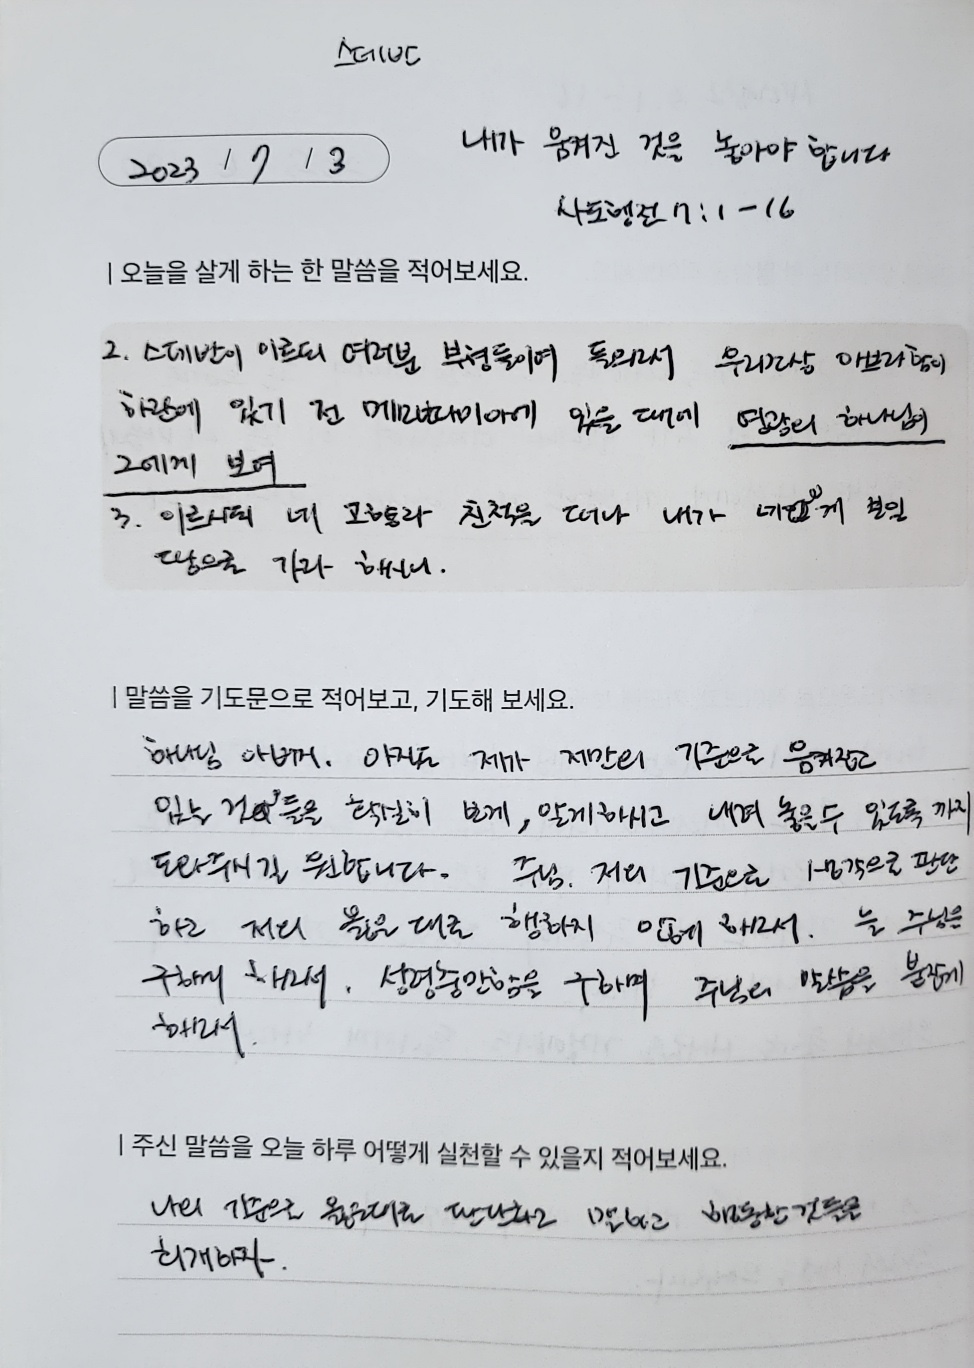 스데반
2023 / 7 / 3
내가 움켜진 것을 놓아야 합니다
사도행전 7:1-16
| 오늘을 살게 하는 한 말씀을 적어보세요.
2. 스데반이 이르되 여러분 부형들이여 들으소서 우리조상 아브라함이
하란에 있기 전 메소보다미아에 있을 때에 영광의 하나님이
그에게 보여
3. 이르시되 네 고향과 친척을 떠나 내가 네게 보일
땅으로 가라 하시니.
| 말씀을 기도문으로 적어보고, 기도해 보세요.
하나님 아버지. 아직도 제가 제 기준으로 움켜잡고
있는 것들을 확실히 보게, 알게하시고 내려 놓을수 있도록 까지
도와주시길 원합니다. 주님. 저의 기준으로 판단
하고 저의 대로 행하지 않게 하소서. 늘 주님은
구하게 하소서. 성령충만함을 구하며 주님의 말씀을 붙잡게
하소서.
| 주신 말씀을 오늘 하루 어떻게 실천할 수 있을지 적어보세요.
나의 기준으로 판단하고 말하고 행동한것들을
회개하자.